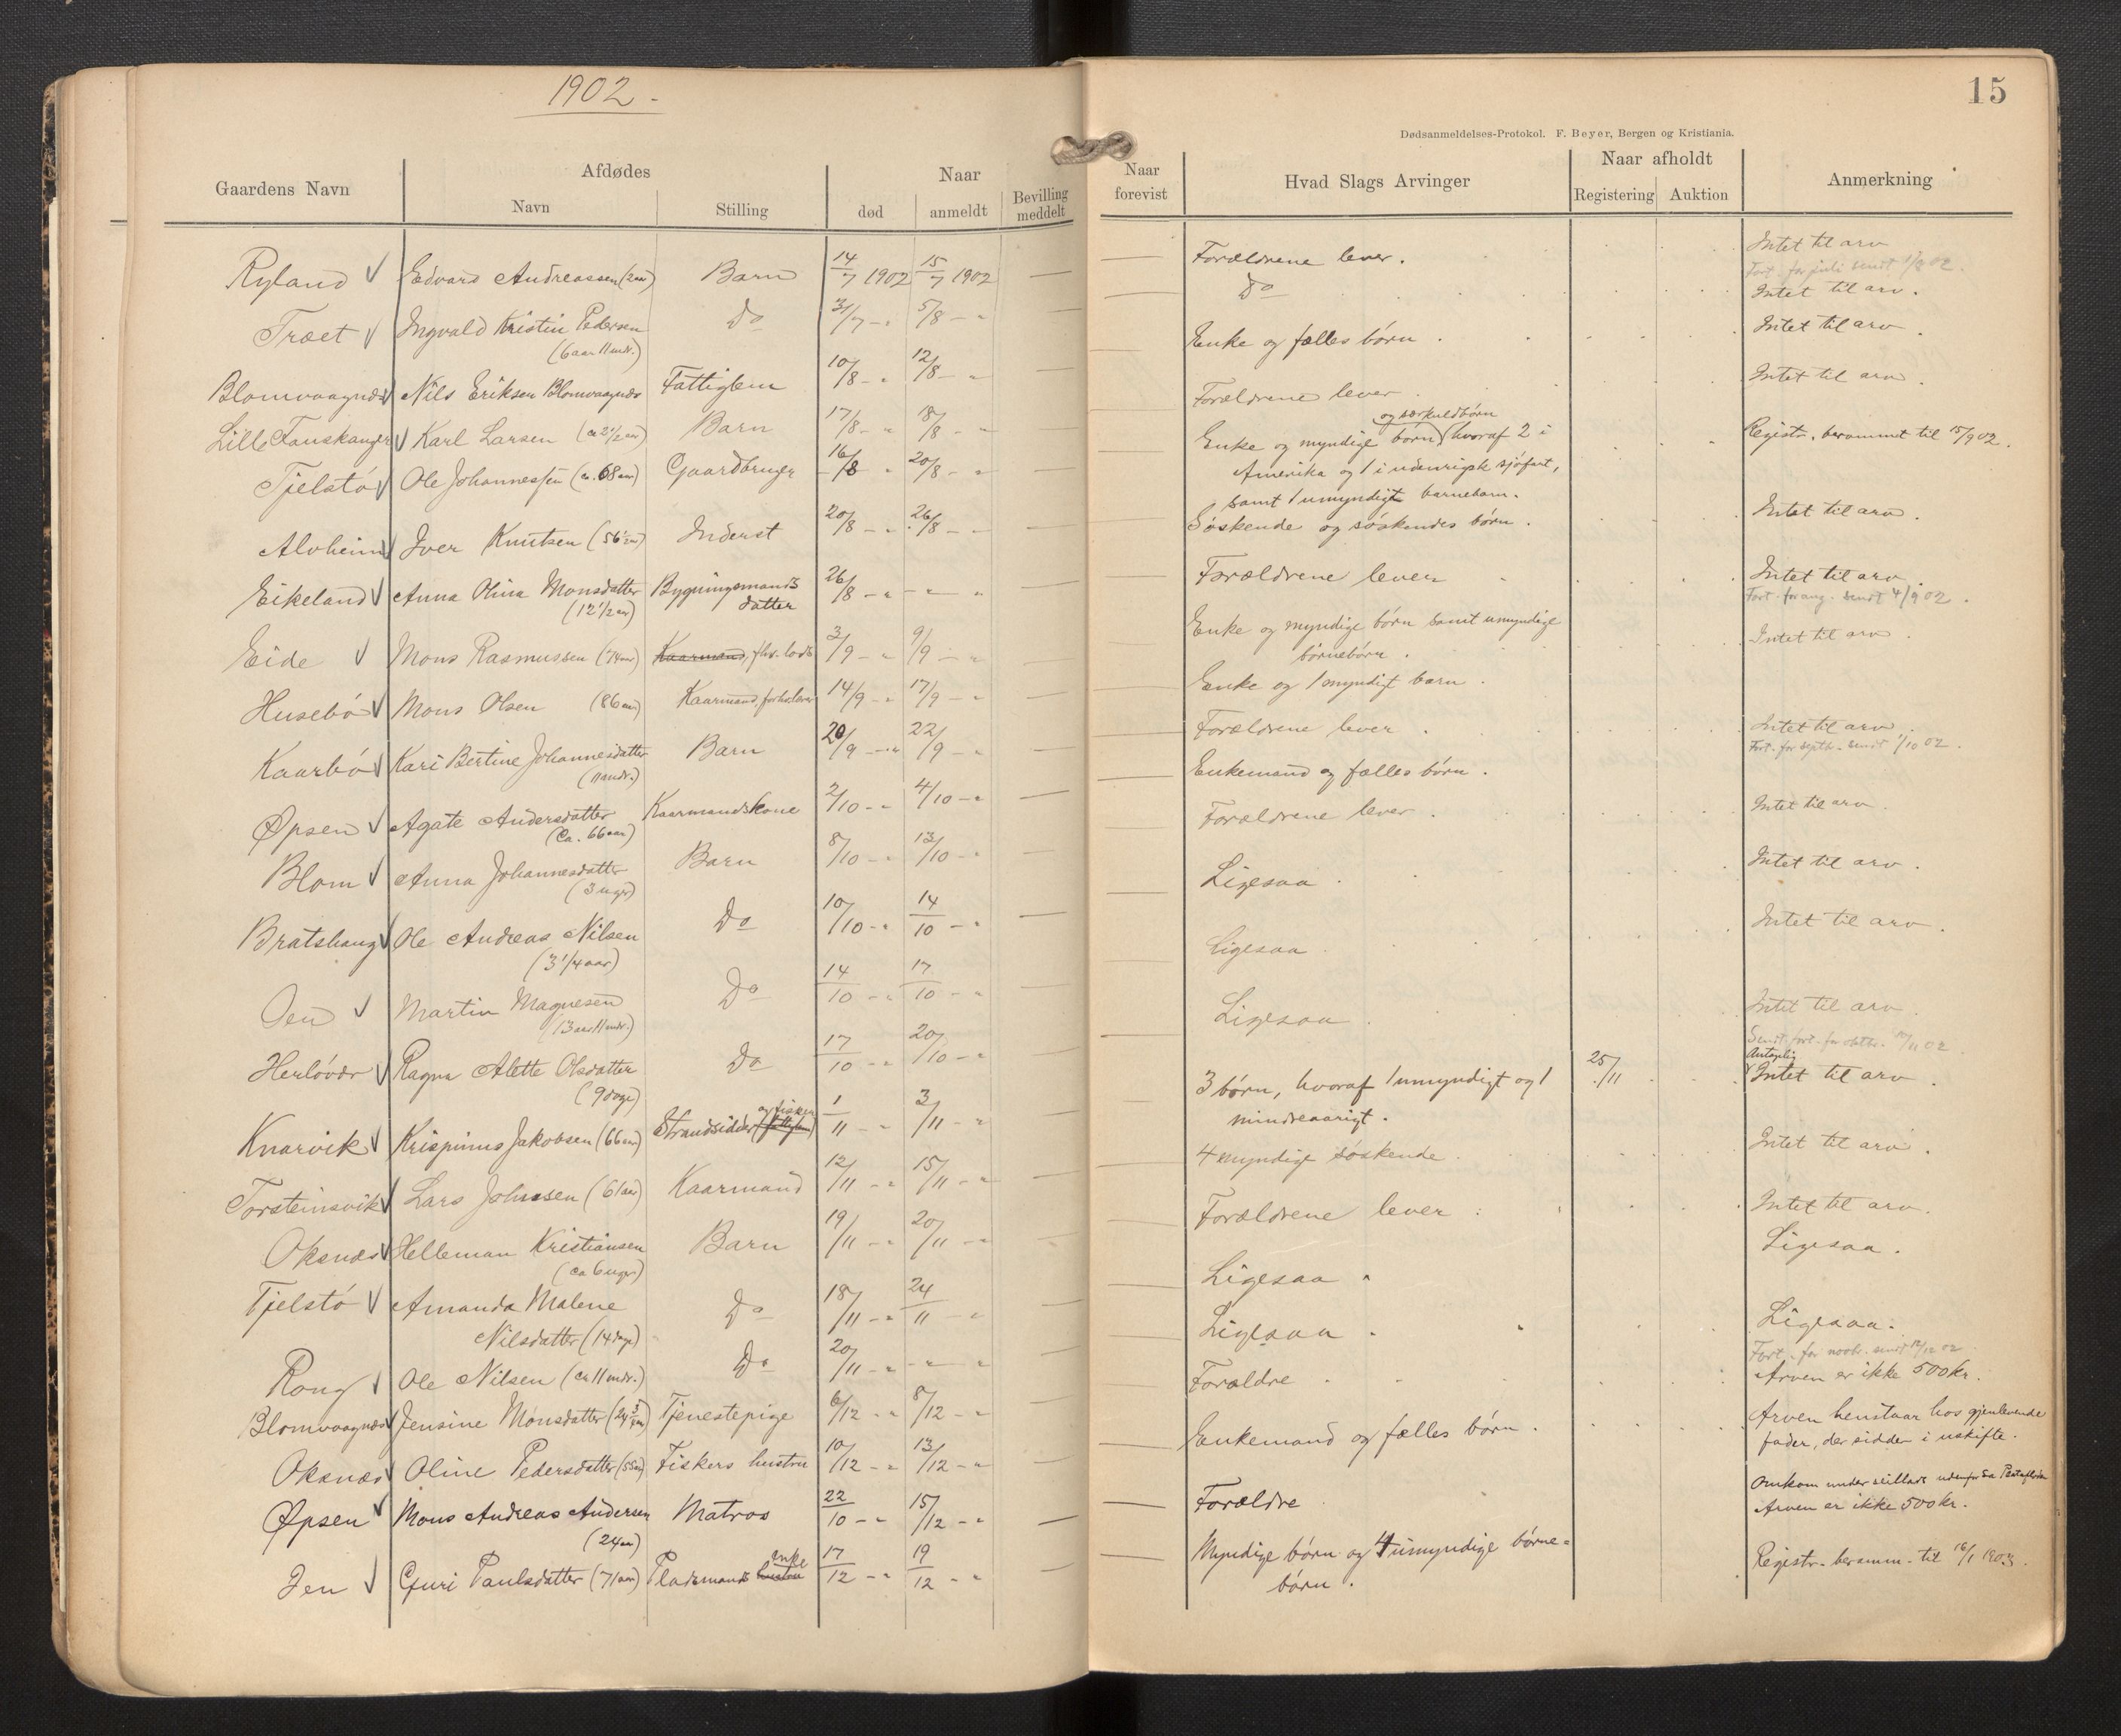 1902 -
Gaardens Navn
Afdødes
Navn
Stilling
Naar
død
anmeldt
Bevilling meddelt
Ryland Edvard Andreassen (2 aar) Barn 14/7 1902 15/7 1902 —
Træet Ingvald Kristin Pedersen Do 31/7 - " 5/8 - " —
(6 aar 11 mdr.)
Blomvaagnæs Nils Eriksen Blomvaagnæs Fattiglem 10/8 - " 12/8 - " —
Lille Fauskanger Karl Larsen (ca 2 1/2 aar) Barn 17/8 - " 18/8 - " —
Tjelstø Ole Johannessen (ca. 68 aar) Gaardbruger 16/8 " 20/8 - " —
Alvheim Iver Knutsen (56 1/2 aar) Inderst 20/8 - " 26/8 - " —
Eikeland Anna Olina Monsdatter Bygningsmands 26/8 - " - " " —
(12 1/2 aar) datter
Eide Mons Rasmussen (74 aar) Kaarmand, 3/9 - " 9/9 - " —
Husebø Mons Olsen (86 aar) Kaarmand, 14/9 - " 17/9 - " —
Kaarbø Kari Bertine Johannesdatter Barn 20/9 - " 22/9 - " —
(11 mdr.)
Øpsen Agate Andersdatter Kaarmandskone 2/10 - " 4/10 - " —
(ca. 66 aar)
Blom Anna Johannesdatter Barn 8/10 - " 13/10 - " —
(3 uger)
Bratshaug Ole Andreas Nilsen Do 10/10 - " 14/10 - " —
(3 1/4 aar)
Oen Martin Magnesen Do 14/10 - " 17/10 - " —
(13 aar 11 mdr.)
Herløvær Ragna Alette Olsdatter Do 17/10 - " 20/10 - " —
(9 dage)
og fisker
Knarvik Krispinus Jakobsen (66 aar) Strandsidder (fattiglem) 1/11 - " 3/11 - " —
Torsteinsvik Lars Johnsen (61 aar) Kaarmand 12/11 - " 15/11 - " —
Oksnæs Helleman Kristiansen Barn 19/11 - " 20/11 - " —
(ca 6 uger)
Tjelstø Amanda Malene Do 18/11 - " 24/11 - " —
Nilsdatter (14 dage)
Rong Ole Nilsen (ca 11 mdr.) Do 20/11 - " - " " —
Blomvaagnæs Jensine Monsdatter (24 3/4 aar) Tjenestepige 6/12 - " 8/12 - " —
Oksnæs Oline Pedersdatter (55 aar) Fiskers hustru 10/12 - " 13/12 - " —
Øpsen Mons Andreas Andersen Matros 22/10 - " 15/12 - " —
(24 aar)
enke
Jen Guri Paulsdatter (71 aar) Pladsmands hustru 17/12 - " 19/12 - " —
15
Dødsanmeldelses-Protokol. F. Beyer, Bergen og Kristiania.
Naar forevist
Hvad Slags Arvinger
Naar afholdt
Registering
Auktion
Anmerkning
— Forældrene lever. Intet til arv
Fort. for juli sendt 1/8 02.
— Do Intet til arv.
— Enke og fælles børn. Intet til arv.
— Forældrene lever. Intet til arv.
og særkuldbørn
— Enke og myndige børn (hvoraf 2 i Registr. berammet til 15/9 02.
Amerika og 1 i udenrigsk sjøfart,
samt 1 umyndigt barnebarn.
— Søskende og søskendes børn. Intet til arv.
— Forældrene lever Intet til arv.
Fort. for aug. sendt 4/9 02.
— Enke og myndige børn samt umyndige Intet til arv.
børnebørn.
— Enke og 1 myndigt barn.
— Forældrene lever. Intet til arv.
Fort. for septbr. sendt 1/10 02.
— Enkemand og fælles børn. Intet til arv.
— Forældrene lever. Intet til arv.
— Ligesaa. Intet til arv.
— Ligesaa Intet til arv.
— Ligesaa. Sendt fort. for oktbr. /11 02.
Antagelig
— 3 børn, hvoraf 1 umyndigt og 1 25/11 Intet til arv.
mindreaarigt.
— 4 myndige søskende. Intet til arv.
— Forældrene lever. Intet til arv.
— Ligesaa " Ligesaa.
— Ligesaa. Ligesaa.
Fort. for novbr. sendt /12 02.
— Forældre Arven er ikke 500 kr.
— Enkemand og fælles børn. Arven henstaar hos gjenlevende
fader, der sidder i uskifte.
Omkom under seillads udenfor
— Forældre Arven er ikke 500 kr.
— Myndige børn og 4 umyndige børne- Registr. beramm. til 16/1 1903.
børn.